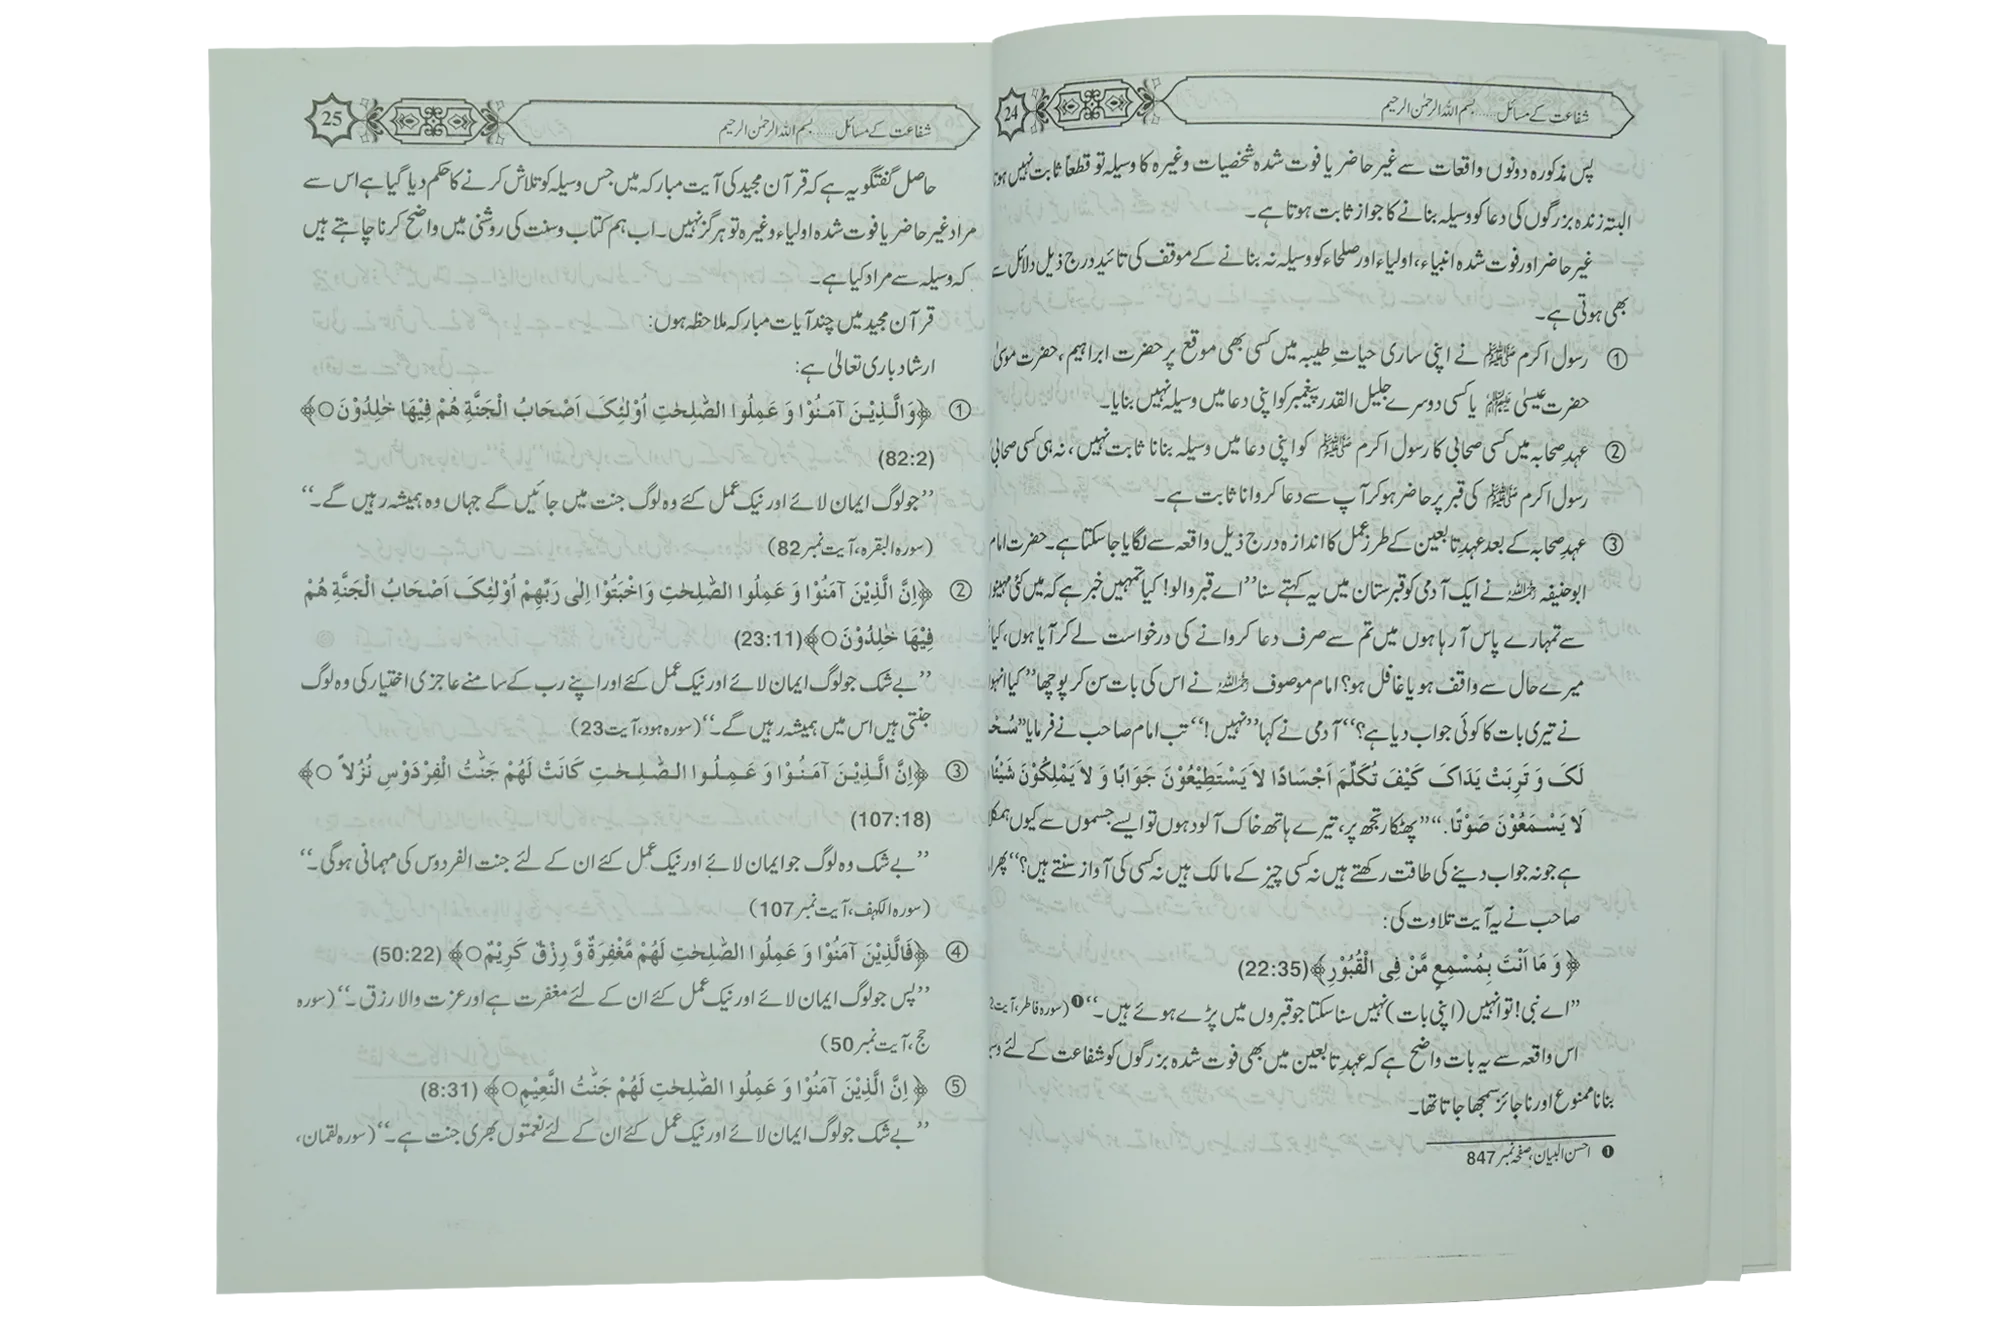 شفاعت کے مسائل ..... بسم اللہ الرحمٰن الرحیم
24
پس مذکورہ دونوں واقعات سے غیر حاضر یا فوت شدہ شخصیات وغیرہ کا وسیلہ تو قطعاً ثابت نہیں ہوتا
البتہ زندہ بزرگوں کی دعا کو وسیلہ بنانے کا جواز ثابت ہوتا ہے۔
غیر حاضر اور فوت شدہ انبیاء، اولیاء اور صلحاء کو وسیلہ نہ بنانے کے موقف کی تائید درج ذیل دلائل سے
بھی ہوتی ہے۔
① رسول اکرم ﷺ نے اپنی ساری حیاتِ طیبہ میں کسی بھی موقع پر حضرت ابراہیم، حضرت موسیٰ
حضرت عیسیٰ یا کسی دوسرے جلیل القدر پیغمبر کو اپنی دعا میں وسیلہ نہیں بنایا۔
② عہدِ صحابہ میں کسی صحابی کا رسول اکرم ﷺ کو اپنی دعا میں وسیلہ بنانا ثابت نہیں، نہ ہی کسی صحابی
رسول اکرم ﷺ کی قبر پر حاضر ہو کر آپ سے دعا کروانا ثابت ہے۔
③ عہدِ صحابہ کے بعد عہدِ تابعین کے طرزِ عمل کا اندازہ درج ذیل واقعہ سے لگایا جاسکتا ہے۔ حضرت امام
ابوحنیفہ نے ایک آدمی کو قبرستان میں یہ کہتے سنا ’’اے قبر والو! کیا تمہیں خبر ہے کہ میں کئی مہینوں
سے تمہارے پاس آرہا ہوں میں تم سے صرف دعا کروانے کی درخواست لے کر آیا ہوں، کیا
میرے حال سے واقف ہو یا غافل ہو؟ امام موصوف نے اس کی بات سن کر پوچھا ’’کیا انہوں
نے تیری بات کا کوئی جواب دیا ہے؟‘‘ آدمی نے کہا ’’نہیں!‘‘ تب امام صاحب نے فرمایا ’’سُحْ
لَکَ وَ تَرِبَتْ یَدَاکَ کَیْفَ تُکَلِّمَ اَجْسَادًا لاَ یَسْتَطِیْعُوْنَ جَوَابًا وَ لاَ یَمْلِکُوْنَ شَیْئًا
لَا یَسْمَعُوْنَ صَوْتًا.‘‘ ’’پھٹکار تجھ پر، تیرے ہاتھ خاک آلود ہوں تو ایسے جسموں سے کیوں ہمکلا
ہے جو نہ جواب دینے کی طاقت رکھتے ہیں نہ کسی چیز کے مالک ہیں نہ کسی کی آواز سنتے ہیں؟‘‘ پھر ا
صاحب نے یہ آیت تلاوت کی:
﴿ وَ مَا اَنْتَ بِمُسْمِعٍ مَّنْ فِی الْقُبُوْرِ﴾ (22:35)
’’اے نبی! تو انہیں (اپنی بات) نہیں سنا سکتا جو قبروں میں پڑے ہوئے ہیں۔‘‘❶ (سورہ فاطر، آیت 2
اس واقعہ سے یہ بات واضح ہے کہ عہدِ تابعین میں بھی فوت شدہ بزرگوں کو شفاعت کے لئے وس
بنانا ممنوع اور ناجائز سمجھا جاتا تھا۔
❶ احسن البیان، صفحہ نمبر 847
شفاعت کے مسائل ..... بسم اللہ الرحمٰن الرحیم
25
حاصل گفتگو یہ ہے کہ قرآن مجید کی آیت مبارکہ میں جس وسیلہ کو تلاش کرنے کا حکم دیا گیا ہے اس سے
مراد غیر حاضر یا فوت شدہ اولیاء وغیرہ تو ہرگز نہیں۔ اب ہم کتاب وسنت کی روشنی میں واضح کرنا چاہتے ہیں
کہ وسیلہ سے مراد کیا ہے۔
قرآن مجید میں چند آیات مبارکہ ملاحظہ ہوں:
ارشاد باری تعالیٰ ہے:
① ﴿وَالَّذِیْنَ آمَنُوْا وَ عَمِلُوا الصّٰلِحٰتِ اُوْلٰئِکَ اَصْحَابُ الْجَنَّةِ هُمْ فِیْهَا خٰلِدُوْنَ○﴾
(82:2)
’’جو لوگ ایمان لائے اور نیک عمل کئے وہ لوگ جنت میں جائیں گے جہاں وہ ہمیشہ رہیں گے۔‘‘
(سورہ البقرہ، آیت نمبر 82)
② ﴿اِنَّ الَّذِیْنَ آمَنُوْا وَ عَمِلُوا الصّٰلِحٰتِ وَاَخْبَتُوْا اِلٰی رَبِّهِمْ اُوْلٰئِکَ اَصْحَابُ الْجَنَّةِ هُمْ
فِیْهَا خٰلِدُوْنَ○﴾ (23:11)
’’بے شک جو لوگ ایمان لائے اور نیک عمل کئے اور اپنے رب کے سامنے عاجزی اختیار کی وہ لوگ
جنتی ہیں اس میں ہمیشہ رہیں گے۔‘‘ (سورہ ہود، آیت 23)
③ ﴿اِنَّ الَّذِیْنَ آمَنُوْا وَ عَمِلُوا الصّٰلِحٰتِ کَانَتْ لَهُمْ جَنّٰتُ الْفِرْدَوْسِ نُزُلاً ○﴾
(107:18)
’’بے شک وہ لوگ جو ایمان لائے اور نیک عمل کئے ان کے لئے جنت الفردوس کی مہمانی ہوگی۔‘‘
(سورہ الکہف، آیت نمبر 107)
④ ﴿فَالَّذِیْنَ آمَنُوْا وَ عَمِلُوا الصّٰلِحٰتِ لَهُمْ مَّغْفِرَةٌ وَّ رِزْقٌ کَرِیْمٌ○﴾ (50:22)
’’پس جو لوگ ایمان لائے اور نیک عمل کئے ان کے لئے مغفرت ہے اور عزت والا رزق۔‘‘ (سورہ
حج، آیت نمبر 50)
⑤ ﴿ اِنَّ الَّذِیْنَ آمَنُوْا وَ عَمِلُوا الصّٰلِحٰتِ لَهُمْ جَنّٰتُ النَّعِیْمِ○﴾ (8:31)
’’بے شک جو لوگ ایمان لائے اور نیک عمل کئے ان کے لئے نعمتوں بھری جنت ہے۔‘‘ (سورہ لقمان،